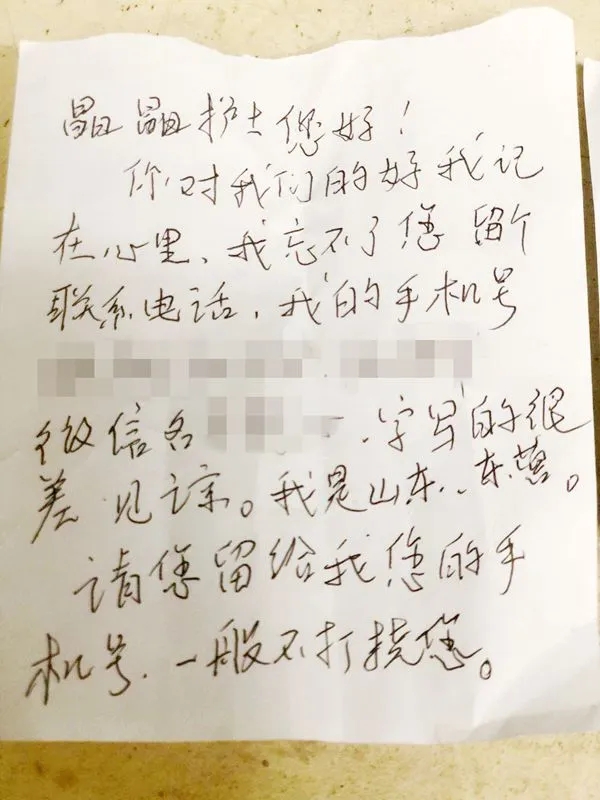 晶晶护士您好！
你对我们的好我记
在心里、我忘不了您留个
联系电话，我的手机号
微信名 、字写的很
差见谅。我是山东、东营。
请您留给我您的手
机号、一般不打挠您。